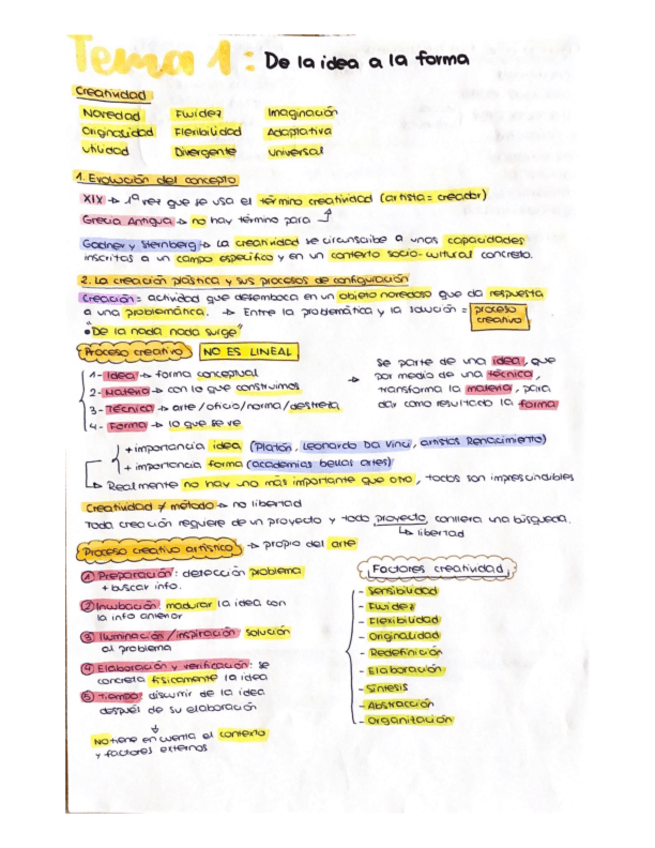 Tema 1: De la idea a la forma
Creatividad
Novedad Fluidez Imaginación
Originalidad Flexibilidad Adaptativa
Utilidad Divergente Universal
1. Evolución del concepto
XIX → 1ª vez que se usa el término creatividad (artista = creador)
Grecia Antigua → no hay término para
Gadner y Sternberg → La creatividad se circunscribe a unas capacidades
inscritas a un campo específico y en un contexto socio-cultural concreto.
2. La creación plástica y sus procesos de configuración
Creación = actividad que desemboca en un objeto novedoso que da respuesta
a una problemática. → Entre la problemática y la solución = proceso
creativo
"De la nada nada surge"
Proceso creativo NO ES LINEAL
1- Idea → forma conceptual
2- Materia → con lo que construimos
3- Técnica → arte/oficio/norma/destreza
4- Forma → lo que se ve
→ Se parte de una idea, que
por medio de una técnica,
transforma la materia, para
dar como resultado la forma
+ importancia idea (Platón, Leonardo Da Vinci, artistas Renacimiento)
+ importancia forma (academias bellas artes)
→ Realmente no hay uno más importante que otro, todos son imprescindibles
Creatividad ≠ método → no libertad
Toda creación requiere de un proyecto y todo proyecto, conlleva una búsqueda.
→ libertad
Proceso creativo artístico → propio del arte
① Preparación: detección problema
+ buscar info.
② Incubación: madurar la idea con
la info anterior
③ Iluminación/inspiración: solución
al problema
④ Elaboración y verificación: se
concreta físicamente la idea
⑤ Tiempo: discurrir de la idea
después de su elaboración
↓
No tiene en cuenta el contexto
y factores externos
Factores creatividad
- Sensibilidad
- Fluidez
- Flexibilidad
- Originalidad
- Redefinición
- Elaboración
- Síntesis
- Abstracción
- Organización